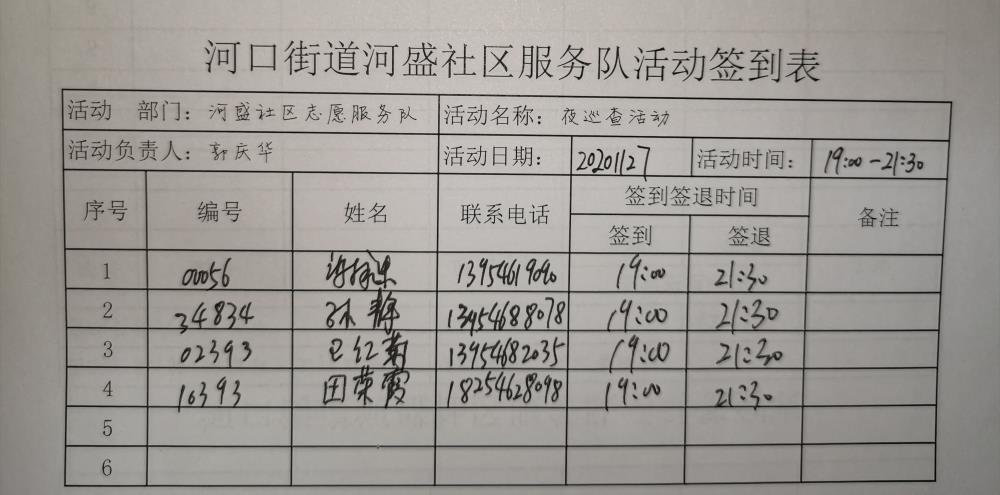 河口街道河盛社区服务队活动签到表
活动 部门：河盛社区志愿服务队 活动名称：夜巡查活动
活动负责人：郭庆华 活动日期：20201127 活动时间：19:00-21:30
序号 编号 姓名 联系电话 签到签退时间 备注
签到 签退
1 00056 13954619090 19:00 21:30
2 34834 孙静 13954688078 19:00 21:30
3 02393 红菊 13954682035 19:00 21:30
4 10393 田荣霞 18254628098 19:00 21:30
5
6